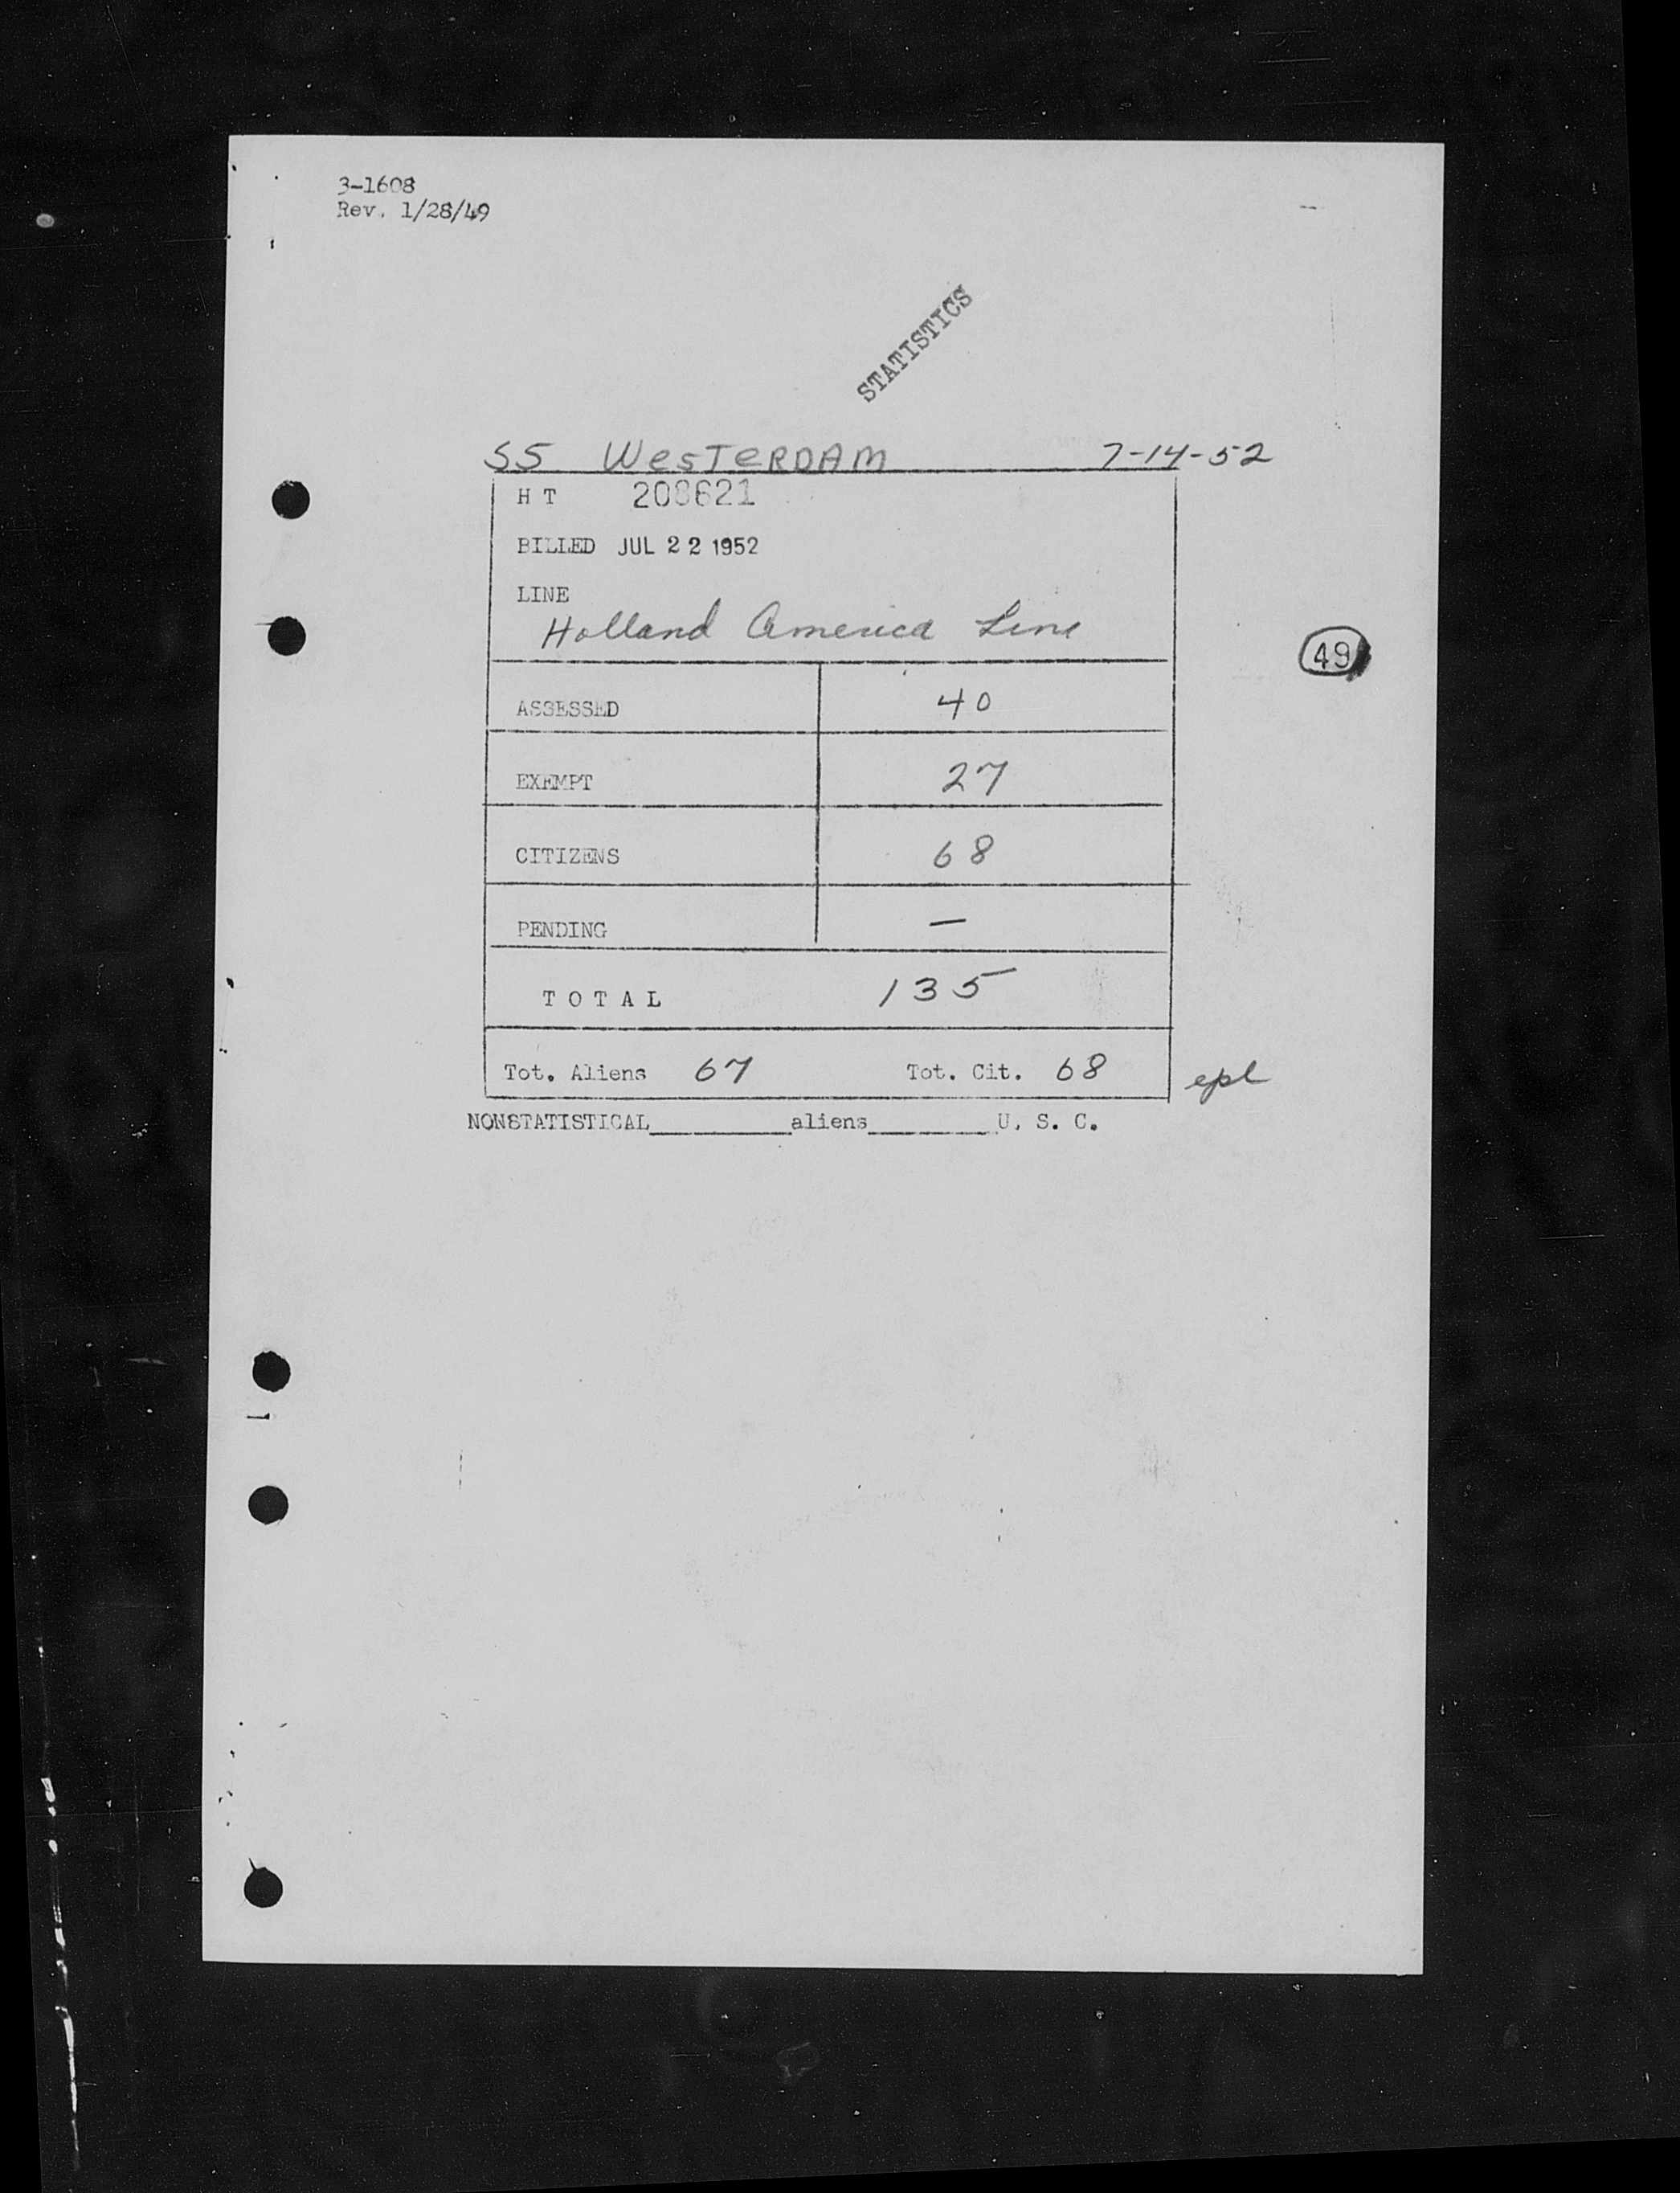 3-1608
Rev. 1/28/49
STATISTICS
SS WESTERDAM 7-14-52
H T 208621
BILLED JUL 22 1952
LINE
Holland America Line
49
ASSESSED 40
EXEMPT 27
CITIZENS 68
PENDING —
TOTAL 135
Tot. Aliens 67 Tot. Cit. 68 epl
NONSTATISTICAL__________aliens_________U. S. C.